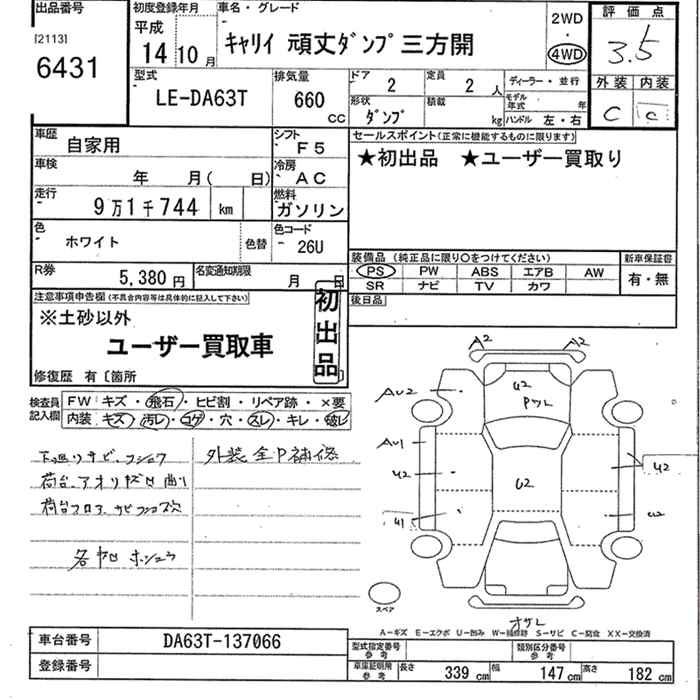 出品番号
[2113]
6431
初度登録年月
平成
14 10月
車名・グレード
キャリイ 頑丈ダンプ 三方開
2WD
・
4WD
評価点
3.5
外装 内装
C C
型式
LE-DA63T
排気量
660 CC
ドア 2
定員 2 人
形状 ダンプ
積載 kg
ディーラー・並行
モデル年式 年
ハンドル 左・右
車歴 自家用
シフト F5
車検 年 月( 日)
冷房 AC
走行 9万1千744 km
燃料 ガソリン
色 ホワイト 色替
色コード 26U
R券 5,380 円
名変通知期限 月 日
セールスポイント(正常に機能するものに限ります)
★初出品 ★ユーザー買取り
装備品 (純正品に限り○をつけてください)
新車保証書
PS PW ABS エアB AW
SR ナビ TV カワ
有・無
後日品
注意事項申告欄(不具合内容等は具体的に記入して下さい)
※土砂以外
ユーザー買取車
初出品
修復歴 有〔箇所
検査員記入欄
FW キズ・飛石・ヒビ割・リペア跡・×要
内装 キズ・汚レ・コゲ・穴・スレ・キレ・破レ
下廻りサビ、
外装 全P補修
荷台、アオリ
荷台フロア、サビ
A2 A2
AU2 U2
AU1
U2 U2 U2
U1
スペア
A-キズ E-エクボ U-凹み W-補修跡 S-サビ C-腐食 XX-交換済
車台番号 DA63T-137066
登録番号
型式指定番号 参考
類別区分番号 参考
車庫証明所 参考
長さ 339 cm 幅 147 cm 高さ 182 cm